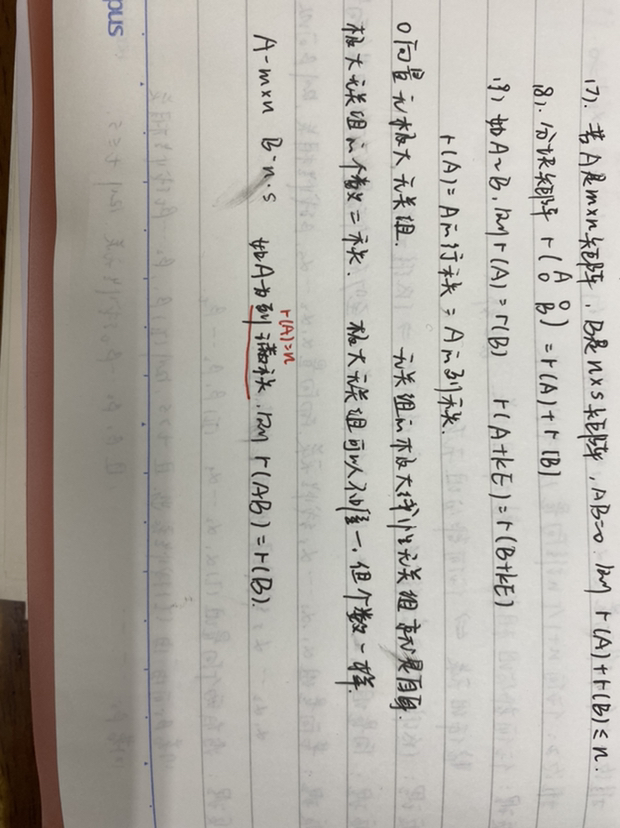 17). 若A是m×n矩阵, B是n×s矩阵, AB=0. 则 r(A)+r(B)≤n.
18). 分块矩阵 r(A 0
0 B) = r(A)+r(B)
19) 如A~B, 则r(A)=r(B) r(A+kE)=r(B+kE)
r(A)=A的行秩=A的列秩.
0向量无极大无关组. 无关组的极大线性无关组就是自身.
极大无关组的个数=秩. 极大无关组可以不唯一, 但个数一样.
r(A)=n
A-m×n B-n·s 如A为列满秩, 则 r(AB)=r(B).
pus